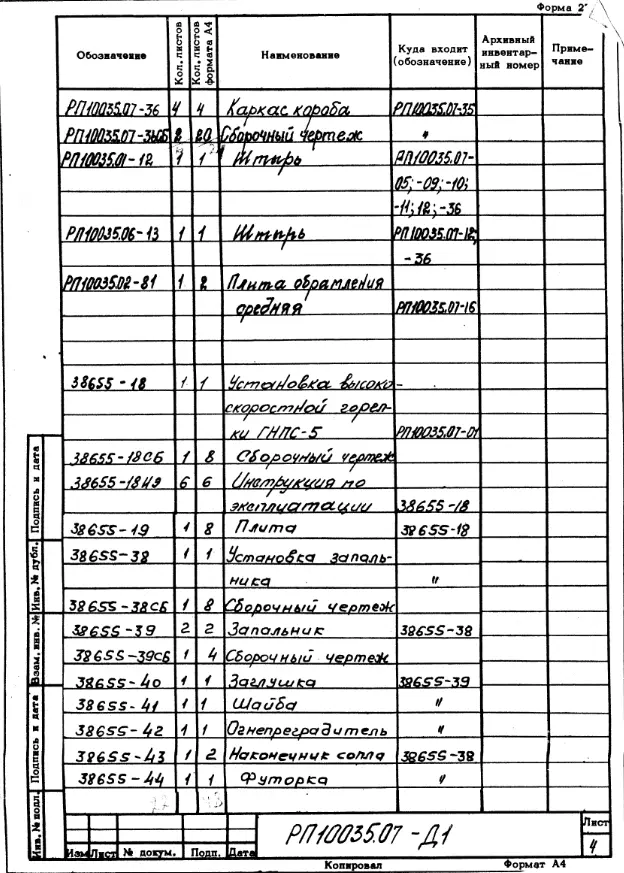 Форма 2
Обозначение Кол. листов Кол. листов формата А4 Наименование Куда входит (обозначение) Архивный инвентарный номер Примечание
РП10035.07-36 4 4 Каркас короба РП10035.07-35
РП10035.07-36СБ 2 20 Сборочный чертеж "
РП10035.01-12 1 1 Штырь РП10035.07-
05; -09; -10;
-11; 12; -36
РП10035.06-13 1 1 Штырь РП10035.07-12;
-36
РП10035.02-81 1 2 Плита обрамления
средняя РП10035.07-16
38655-18 1 1 Установка высоко-
скоростной горел-
ки ГНПС-5 РП10035.07-01
38655-18СБ 1 8 Сборочный чертеж
38655-18ИЭ 6 6 Инструкция по
эксплуатации 38655-18
38655-19 1 8 Плита 38655-18
38655-38 1 1 Установка запаль-
ника "
38655-38СБ 1 8 Сборочный чертеж
38655-39 2 2 Запальник 38655-38
38655-39СБ 1 4 Сборочный чертеж
38655-40 1 1 Заглушка 38655-39
38655-41 1 1 Шайба "
38655-42 1 1 Огнепреградитель "
38655-43 1 2 Наконечник сопла 38655-38
38655-44 1 1 Футорка "
Подпись и дата
Инв. № дубл.
Взам. инв. №
Подпись и дата
Инв. № подл.
РП10035.07-Д1
Лист
4
Изм Лист № докум. Подп. Дата
Копировал Формат А4